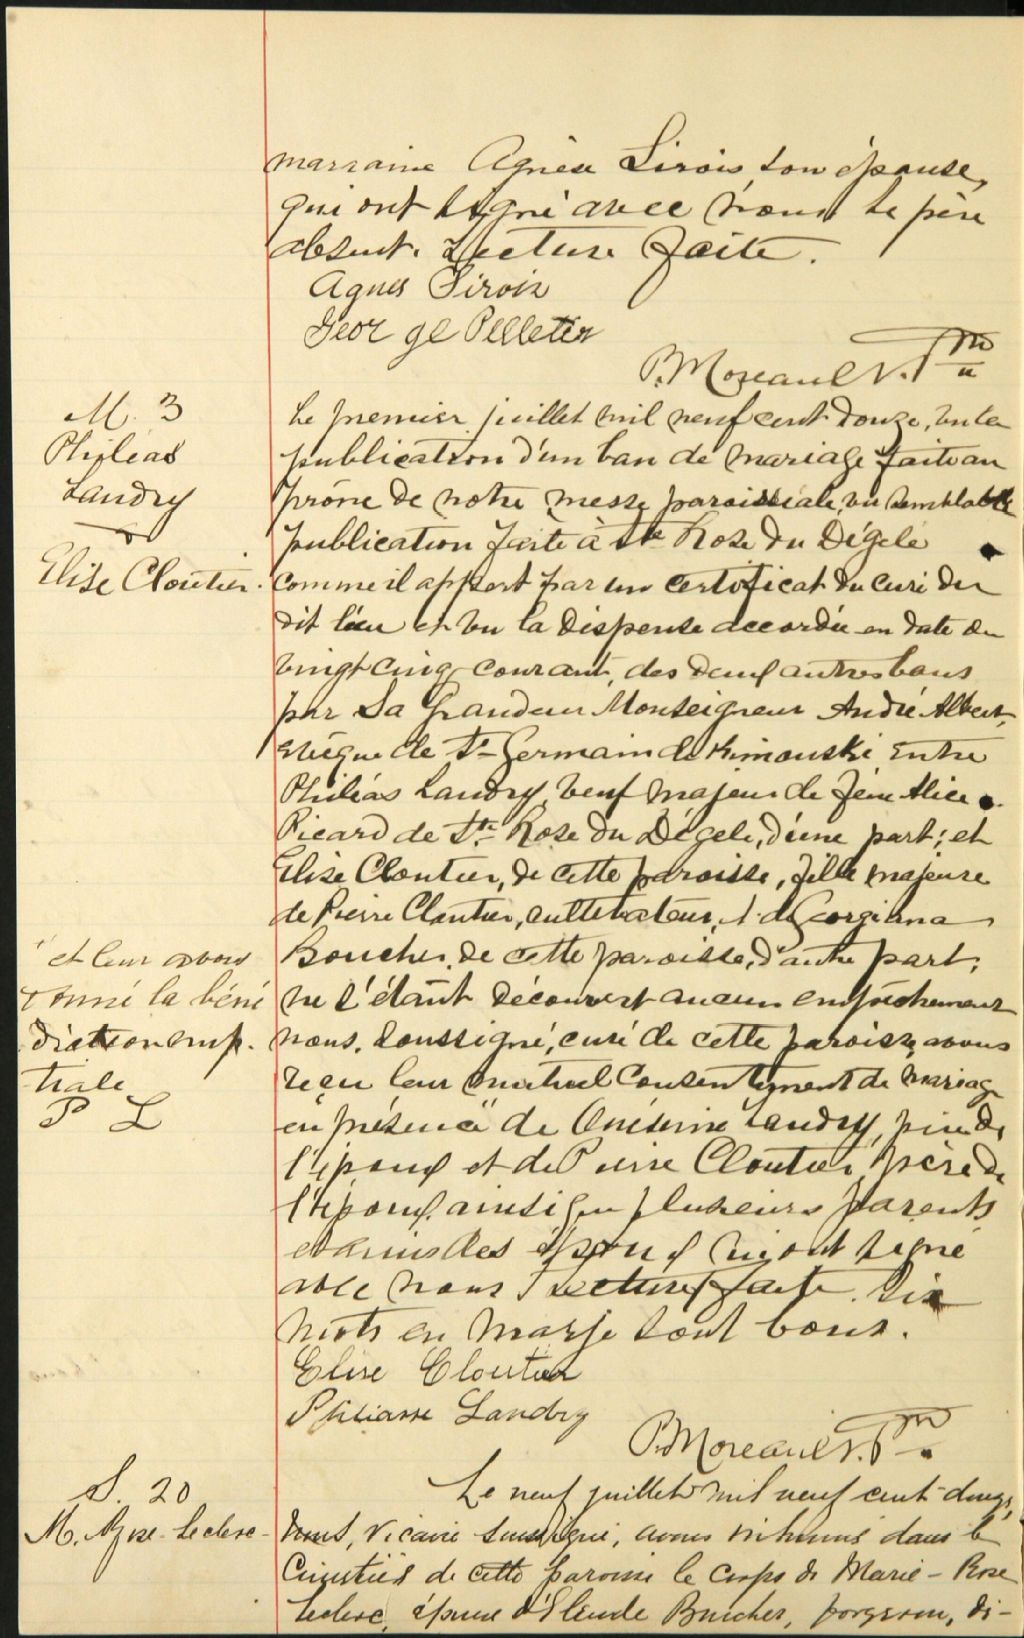 marraine Agnès Sirois son épouse,
qui ont signé avec nous. Le père
absent. Lecture faite.
Agnes Sirois
George Pelletier
P. Moreault
M. 3
Philéas
Landry
&
Elise Cloutier.
Le premier juillet mil neuf cent douze, vu la
publication d'un ban de mariage faite au
prône de notre messe paroissiale, vu semblable
publication faite à Ste Rose du Dégelé
comme il appert par un certificat du curé du
dit lieu et vu la dispense accordée en date du
vingt cinq courant, des deux autres bans
par Sa Grandeur Monseigneur André Albert,
evêque de St Germain de Rimouski, entre
Philéas Landry, veuf majeur de feue Alice
Picard de Ste Rose du Dégelé, d'une part; et
Elise Cloutier, de cette paroisse, fille majeure
de Pierre Cloutier, cultivateur, et de Georgiana
Boucher, de cette paroisse, d'autre part;
ne s'étant découvert aucun empêchement
nous, soussigné, curé de cette paroisse, avons
reçu leur mutuel consentement de mariage
et leur avons
donné la béné
diction nup.
tiale
P L
en présence de Onésime Landry, père de
l'époux et de Pierre Cloutier, père de
l'épouse, ainsi que plusieurs parents
et amis. Les époux ont signé
avec nous. Lecture faite. Six
mots en marge sont bons.
Elise Cloutier
Philiasse Landry
P. Moreault
S. 20
M. Rose Leclerc
Le neuf juillet mil neuf cent douze,
nous, vicaire soussigné, avons inhumé dans le
cimetière de cette paroisse le corps de Marie-Rose
Leclerc, épouse d'Eleude Boucher, forgeron, dé-